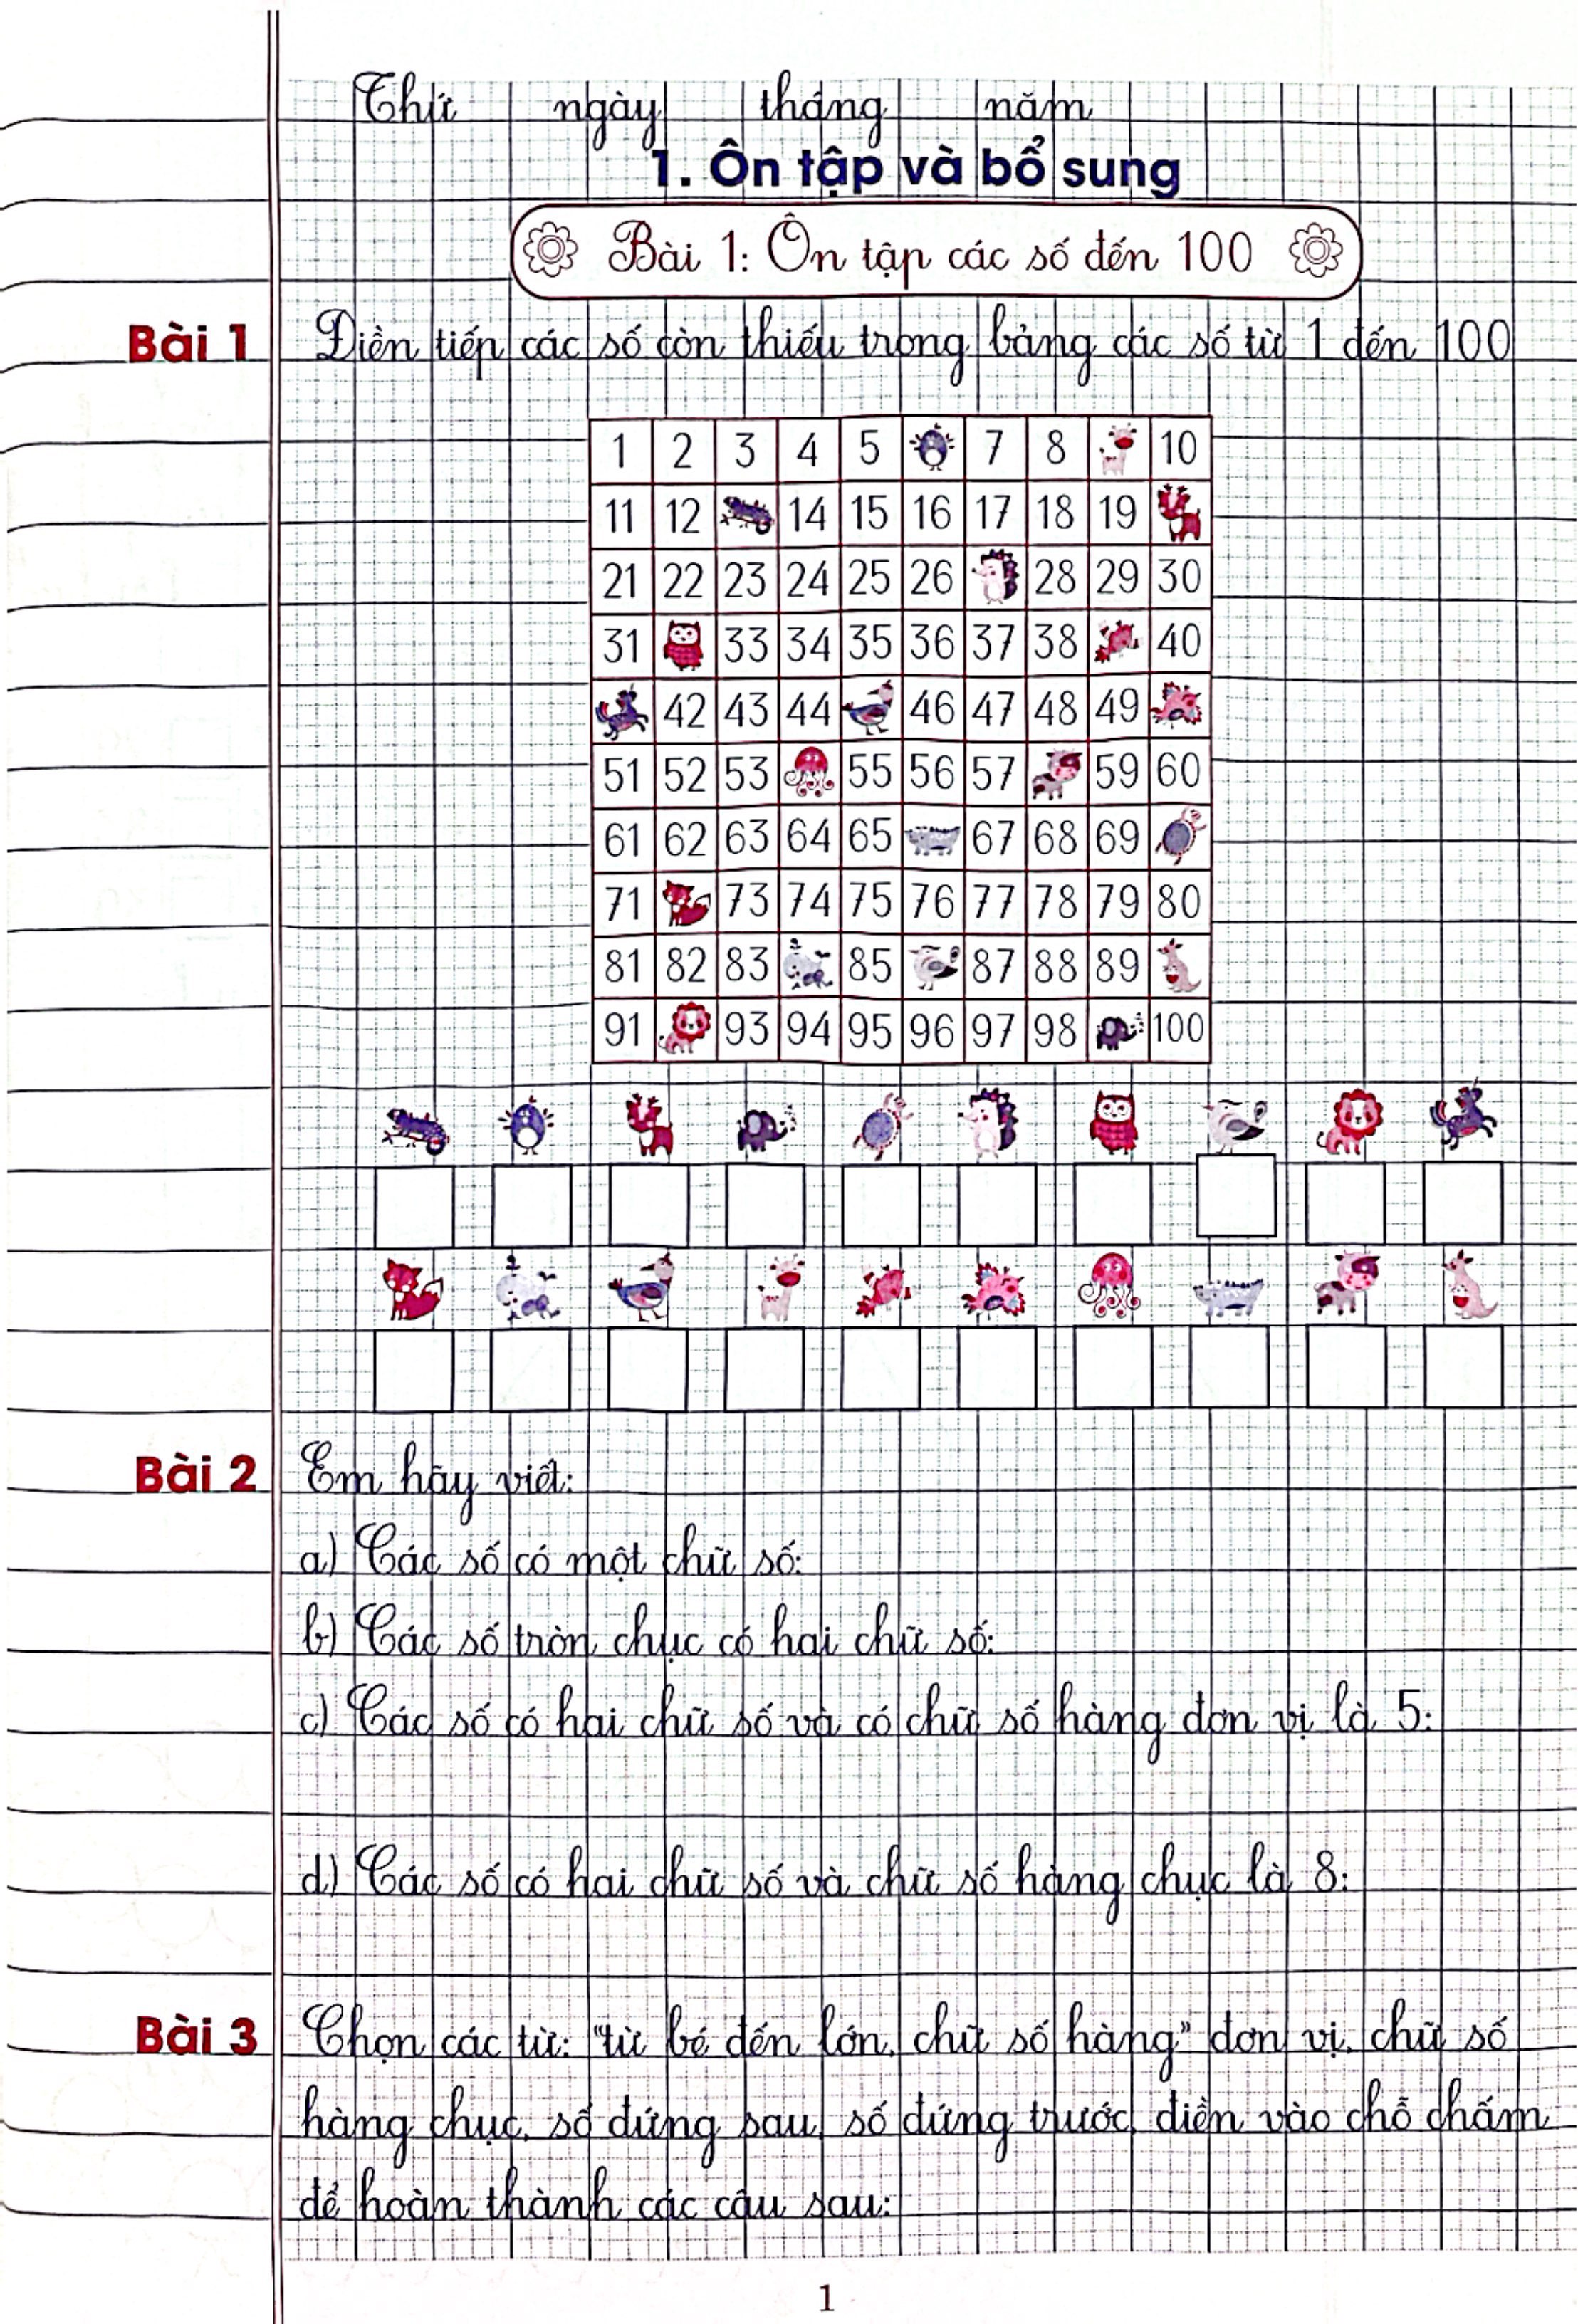 Thứ ngày tháng năm
1. Ôn tập và bổ sung
Bài 1: Ôn tập các số đến 100
Bài 1 Điền tiếp các số còn thiếu trong bảng các số từ 1 đến 100
1 2 3 4 5 7 8 10
11 12 14 15 16 17 18 19
21 22 23 24 25 26 28 29 30
31 33 34 35 36 37 38 40
42 43 44 46 47 48 49
51 52 53 55 56 57 59 60
61 62 63 64 65 67 68 69
71 73 74 75 76 77 78 79 80
81 82 83 85 87 88 89
91 93 94 95 96 97 98 100
Bài 2 Em hãy viết:
a) Các số có một chữ số:
b) Các số tròn chục có hai chữ số:
c) Các số có hai chữ số và có chữ số hàng đơn vị là 5:
d) Các số có hai chữ số và chữ số hàng chục là 8:
Bài 3 Chọn các từ: "từ bé đến lớn, chữ số hàng" đơn vị, chữ số
hàng chục, số đứng sau, số đứng trước, điền vào chỗ chấm
để hoàn thành các câu sau:
1